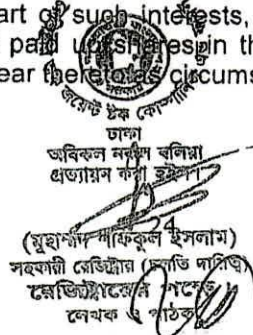 art of such interests,
paid up shares in th
ear thereto as circums
জয়েন্ট ষ্টক কোম্পানি
ঢাকা
অবিকল নকল বলিয়া
প্রত্যায়ন করা হইল।
(মুহাম্মদ শফিকুল ইসলাম)
সহকারী রেজিষ্ট্রার (চলতি দায়িত্ব)
রেজিষ্ট্রারের পক্ষে
লেখক ও পাঠক